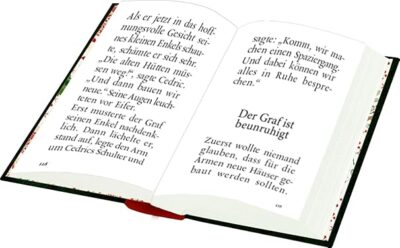 Als er jetzt in das hoff-
nungsvolle Gesicht sei-
nes kleinen Enkels schau-
te, schämte er sich sehr.
„Die alten Hütten müs-
sen weg!“, sagte Cedric.
„Und dann bauen wir
neue.“ Seine Augen leuch-
teten vor Eifer.
Erst musterte der Graf
seinen Enkel nachdenk-
lich. Dann lächelte er,
stand auf, legte den Arm
um Cedrics Schulter und
118
sagte: „Komm, wir ma-
chen einen Spaziergang.
Und dabei können wir
alles in Ruhe bespre-
chen.“
Der Graf ist
beunruhigt
Zuerst wollte niemand
glauben, dass für die
Armen neue Häuser ge-
baut werden sollten.